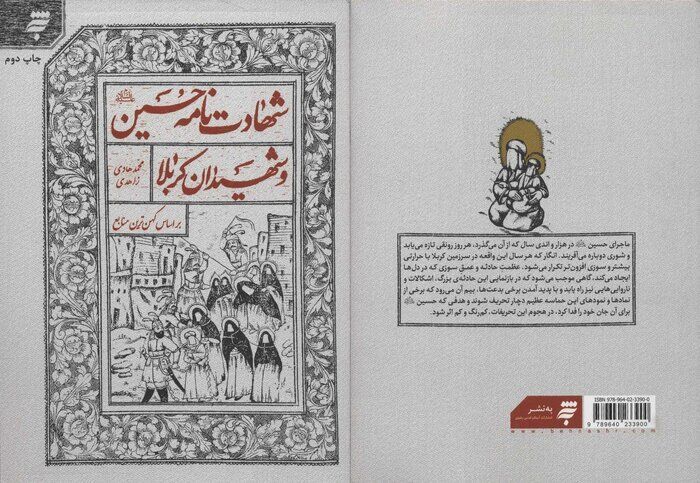 چاپ دوم
شهادت نامه حسین
و شهیدان کربلا
محمدهادی
زاهدی
براساس کهن‌ترین منابع
ماجرای حسین در هزار و اندی سال که از آن می‌گذرد، هر روز رونقی تازه می‌یابد
و شوری دوباره می‌آفریند. انگار که هر سال این واقعه در سرزمین کربلا با حرارتی
بیشتر و سوزی افزون‌تر تکرار می‌شود. عظمتِ حادثه و عمقِ سوزی که در دل‌ها
ایجاد می‌کند، گاهی موجب می‌شود که در بازنمایی این حادثه‌ی بزرگ، اشکالات و
ناروایی‌هایی نیز راه یابد و با پدید آمدن برخی بدعت‌ها، بیم آن می‌رود که برخی از
نمادها و نمودهای این حماسه عظیم دچار تحریف شوند و هدفی که حسین
برای آن جان خود را فدا کرد، در هجوم این تحریفات، کم‌رنگ و کم اثر شود.
به‌نشر
ISBN 978-964-02-3390-0
9 789640 233900
www.behnashr.com